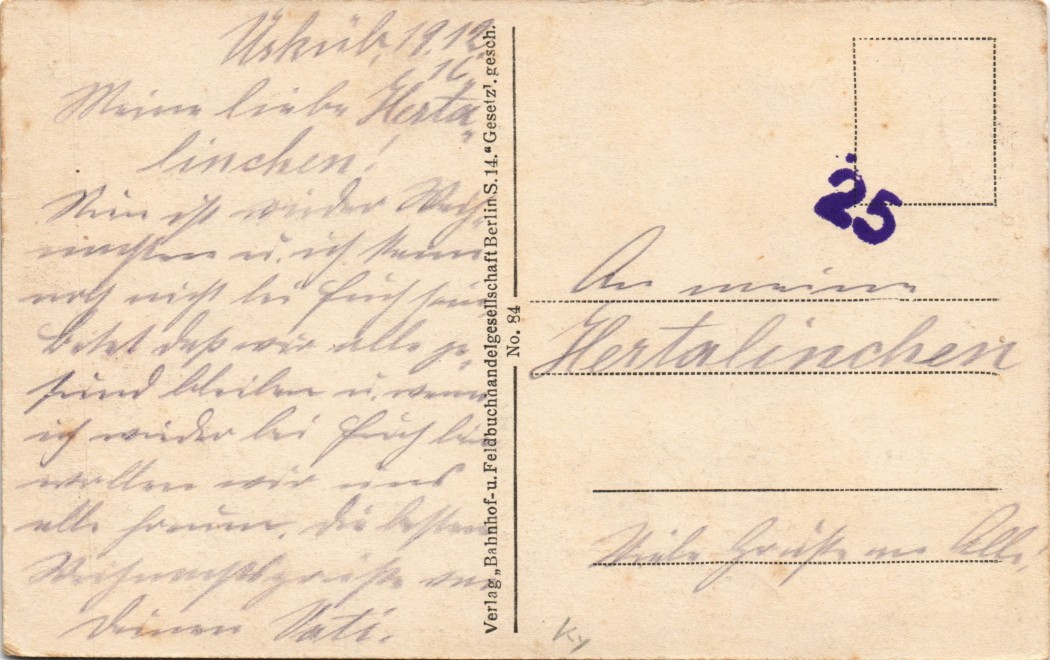 Üsküb, 19.12.
16.
Meine liebe Herta
linchen!
Nun ist wieder Weih
nachten u. ich kann
noch nicht bei Euch sein
betet daß wir alle ge-
sund bleiben u. wenn
ich wieder bei Euch bin
wollen wir uns
alle freuen. Die besten
Weihnachtsgrüße von
Deinen Vati.
Verlag „Bahnhof- u. Feldbuchhandelgesellschaft Berlin S. 14." Gesetzl. gesch.
No. 84
25
An meine
Hertalinchen
Viele Grüße an Alle.
Ky